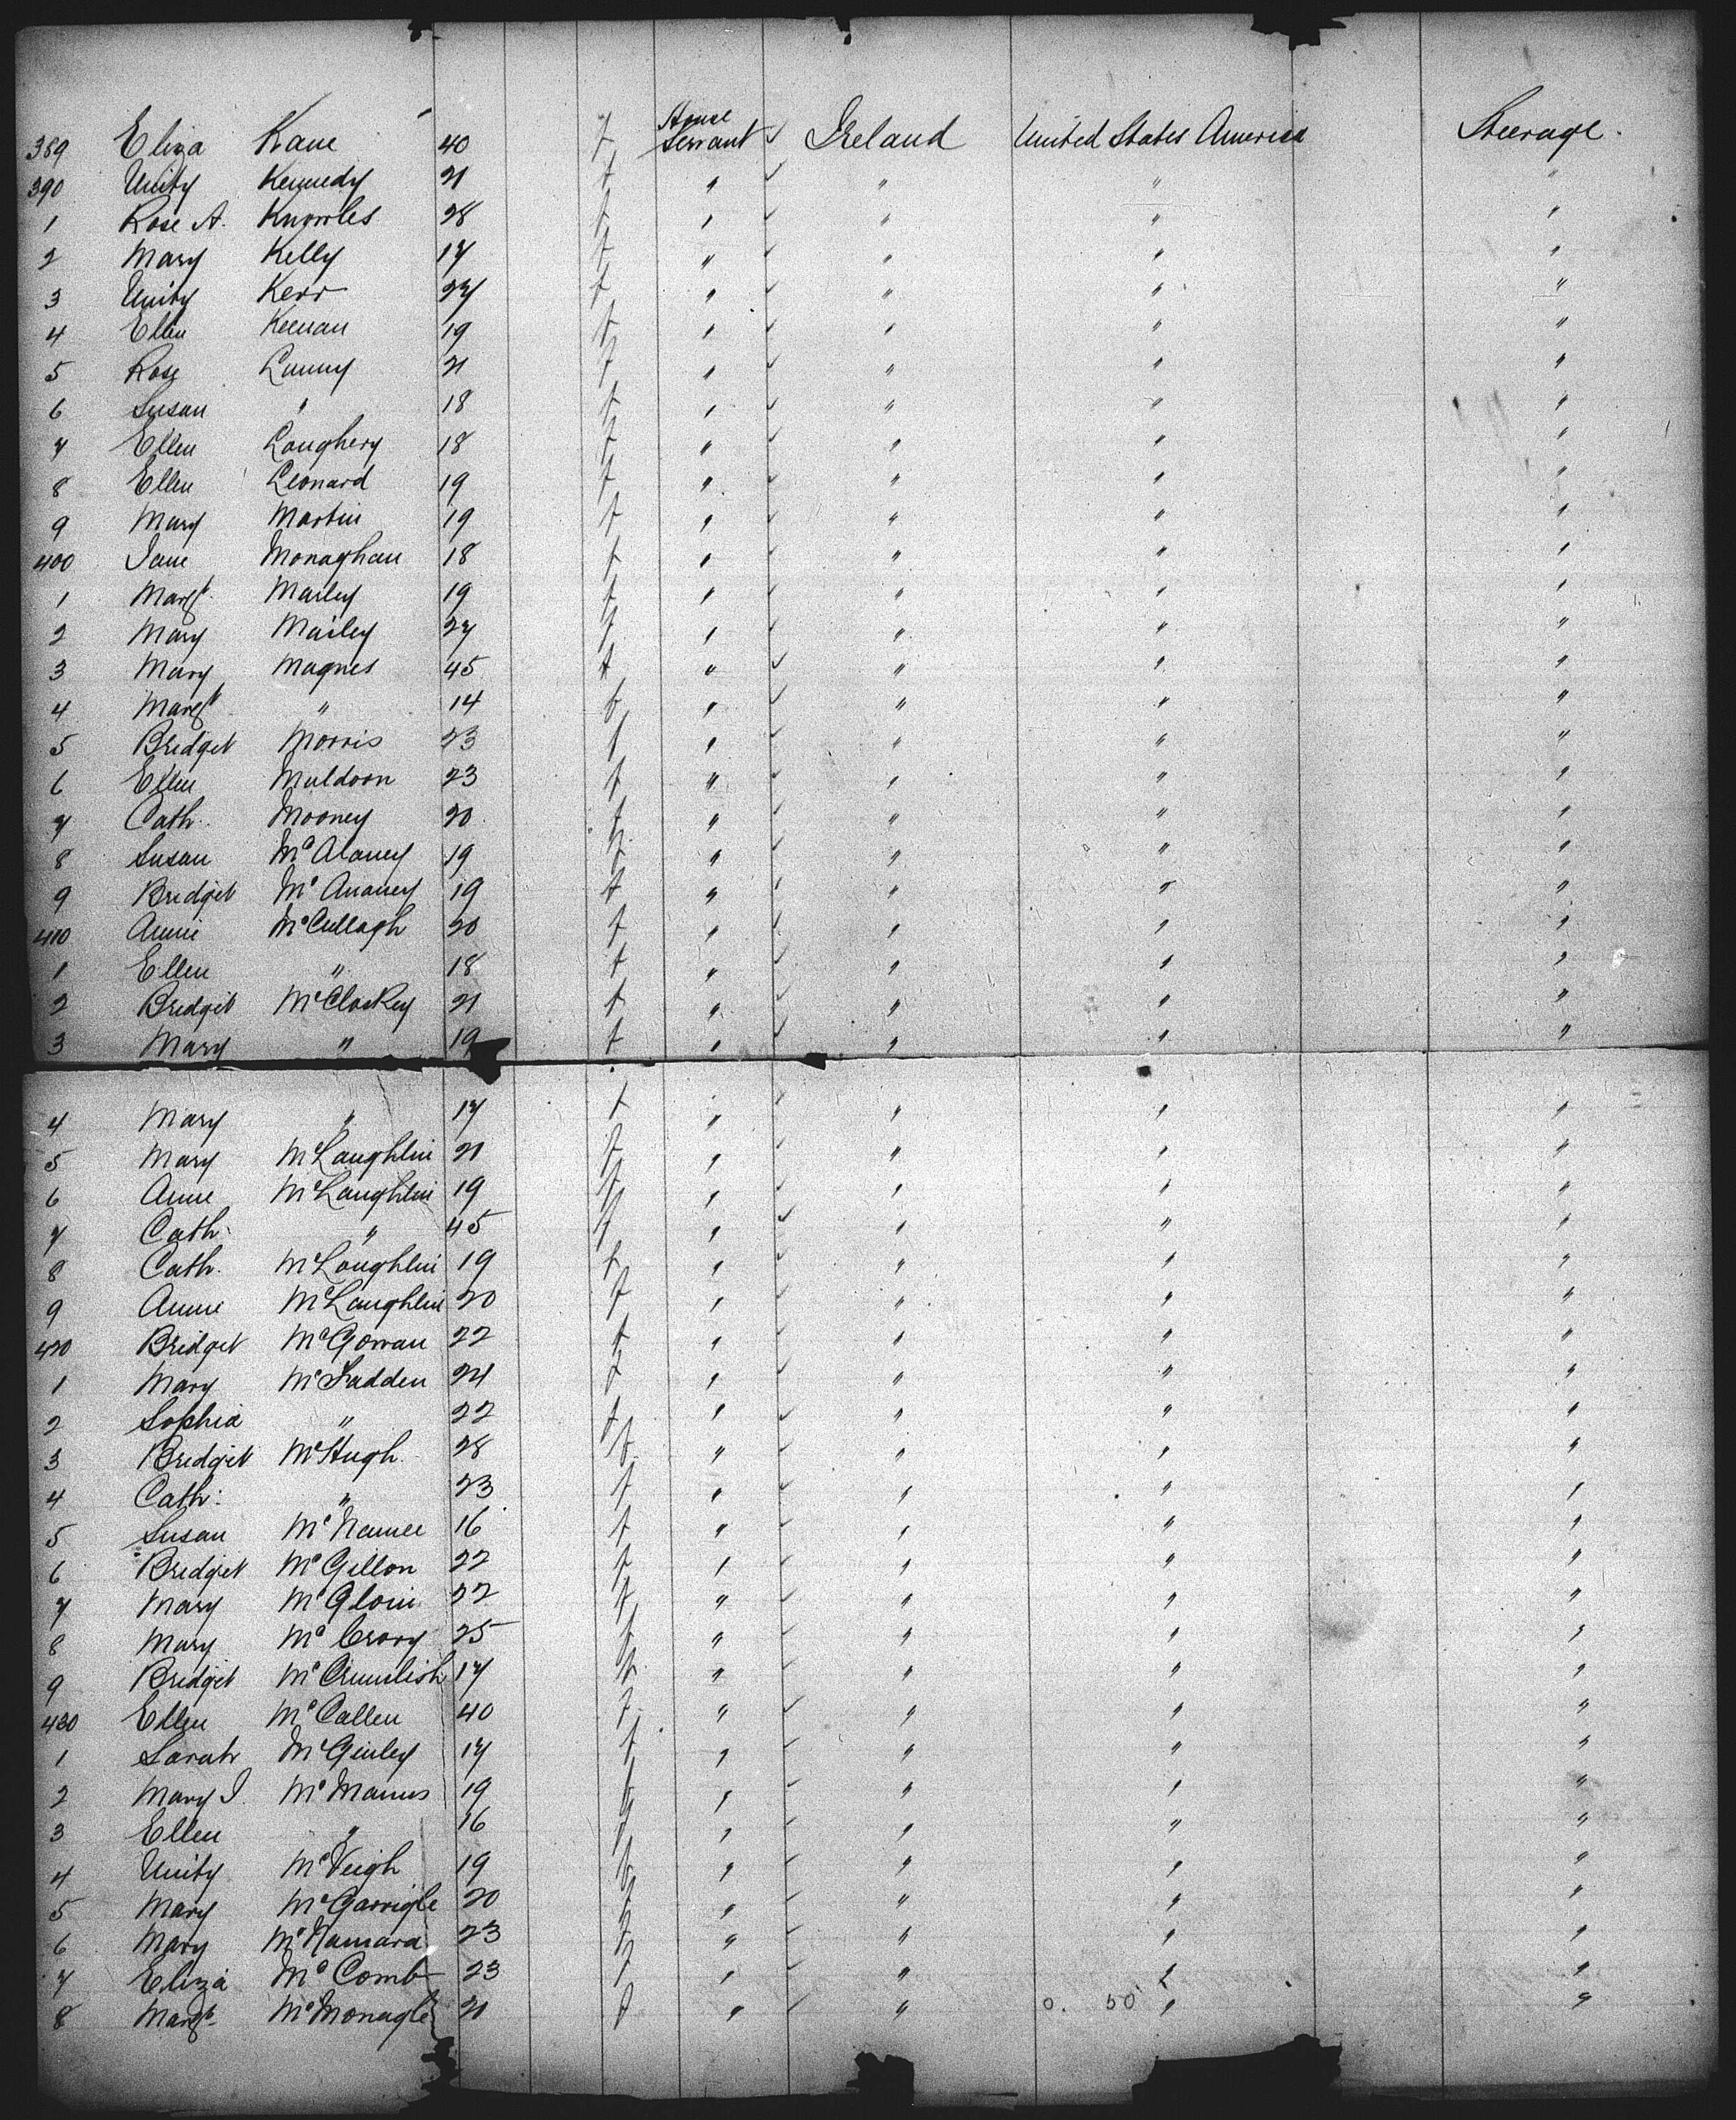 389 Eliza Kane 40 f House Servant ✓ Ireland United States America Steerage.
390 Unity Kennedy 21 f " ✓ " " "
1 Rose A. Knowles 28 f " ✓ " " "
2 Mary Kelly 17 f " ✓ " " "
3 Unity Kerr 27 f " ✓ " " "
4 Ellen Keenan 19 f " ✓ " " "
5 Rose Lunny 21 f " ✓ " " "
6 Susan " 18 f " ✓ " " "
7 Ellen Loughery 18 f " ✓ " " "
8 Ellen Leonard 19 f " ✓ " " "
9 Mary Martin 19 f " ✓ " " "
400 Jane Monaghan 18 f " ✓ " " "
1 Margt. Marley 19 f " ✓ " " "
2 Mary Mailey 27 f " ✓ " " "
3 Mary Magnes 45 f " ✓ " " "
4 Margt " 14 f " ✓ " " "
5 Bridget Morris 23 f " ✓ " " "
6 Ellen Muldoon 23 f " ✓ " " "
7 Cath. Mooney 20 f " ✓ " " "
8 Susan McAlaney 19 f " ✓ " " "
9 Bridget McAnaney 19 f " ✓ " " "
410 Annie McCullagh 20 f " ✓ " " "
1 Ellen " 18 f " ✓ " " "
2 Bridget McCloskey 21 f " ✓ " " "
3 Mary " 19 f " ✓ " " "
4 Mary " 17 f " ✓ " " "
5 Mary McLaughlin 21 f " ✓ " " "
6 Anne McLaughlin 19 f " ✓ " " "
7 Cath. " 45 f " ✓ " " "
8 Cath. McLoughlin 19 f " ✓ " " "
9 Annie McLaughlin 20 f " ✓ " " "
420 Bridget McGowan 22 f " ✓ " " "
1 Mary McFadden 24 f " ✓ " " "
2 Sophia " 22 f " ✓ " " "
3 Bridget McHugh 28 f " ✓ " " "
4 Cath: " 23 f " ✓ " " "
5 Susan McNamee 16 f " ✓ " " "
6 Bridget McGillon 22 f " ✓ " " "
7 Mary McGloin 22 f " ✓ " " "
8 Mary McCrory 25 f " ✓ " " "
9 Bridget McCrumlish 17 f " ✓ " " "
430 Ellen McCallen 40 f " ✓ " " "
1 Sarah McGinley 17 f " ✓ " " "
2 Mary J. McManus 19 f " ✓ " " "
3 Ellen " 16 f " ✓ " " "
4 Unity McVeigh 19 f " ✓ " " "
5 Mary McGarrigle 20 f " ✓ " " "
6 Mary McNamara 23 f " ✓ " " "
7 Eliza McComb 23 f " ✓ " " "
8 Margt. McMonagle 21 f " ✓ " 0. 50 " "